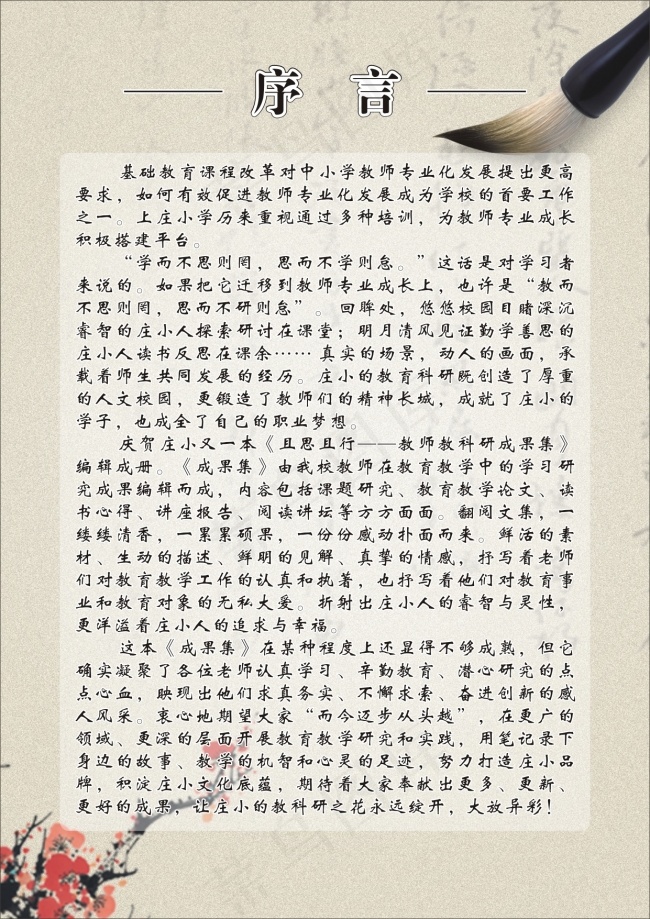 序 言
基础教育课程改革对中小学教师专业化发展提出更高
要求，如何有效促进教师专业化发展成为学校的首要工作
之一。上庄小学历来重视通过多种培训，为教师专业成长
积极搭建平台。
“学而不思则罔，思而不学则怠。”这话是对学习者
来说的。如果把它迁移到教师专业成长上，也许是“教而
不思则罔，思而不研则怠”。回眸处，悠悠校园目睹深沉
睿智的庄小人探索研讨在课堂；明月清风见证勤学善思的
庄小人读书反思在课余……真实的场景，动人的画面，承
载着师生共同发展的经历。庄小的教育科研既创造了厚重
的人文校园，更锻造了教师们的精神长城，成就了庄小的
学子，也成全了自己的职业梦想。
庆贺庄小又一本《且思且行——教师教科研成果集》
编辑成册。《成果集》由我校教师在教育教学中的学习研
究成果编辑而成，内容包括课题研究、教育教学论文、读
书心得、讲座报告、阅读讲坛等方方面面。翻阅文集，一
缕缕清香，一累累硕果，一份份感动扑面而来。鲜活的素
材、生动的描述、鲜明的见解、真挚的情感，抒写着老师
们对教育教学工作的认真和执著，也抒写着他们对教育事
业和教育对象的无私大爱。折射出庄小人的睿智与灵性，
更洋溢着庄小人的追求与幸福。
这本《成果集》在某种程度上还显得不够成熟，但它
确实凝聚了各位老师认真学习、辛勤教育、潜心研究的点
点心血，映现出他们求真务实、不懈求索、奋进创新的感
人风采。衷心地期望大家“而今迈步从头越”，在更广的
领域、更深的层面开展教育教学研究和实践，用笔记录下
身边的故事、教学的机智和心灵的足迹，努力打造庄小品
牌，积淀庄小文化底蕴，期待着大家奉献出更多、更新、
更好的成果，让庄小的教科研之花永远绽开，大放异彩！